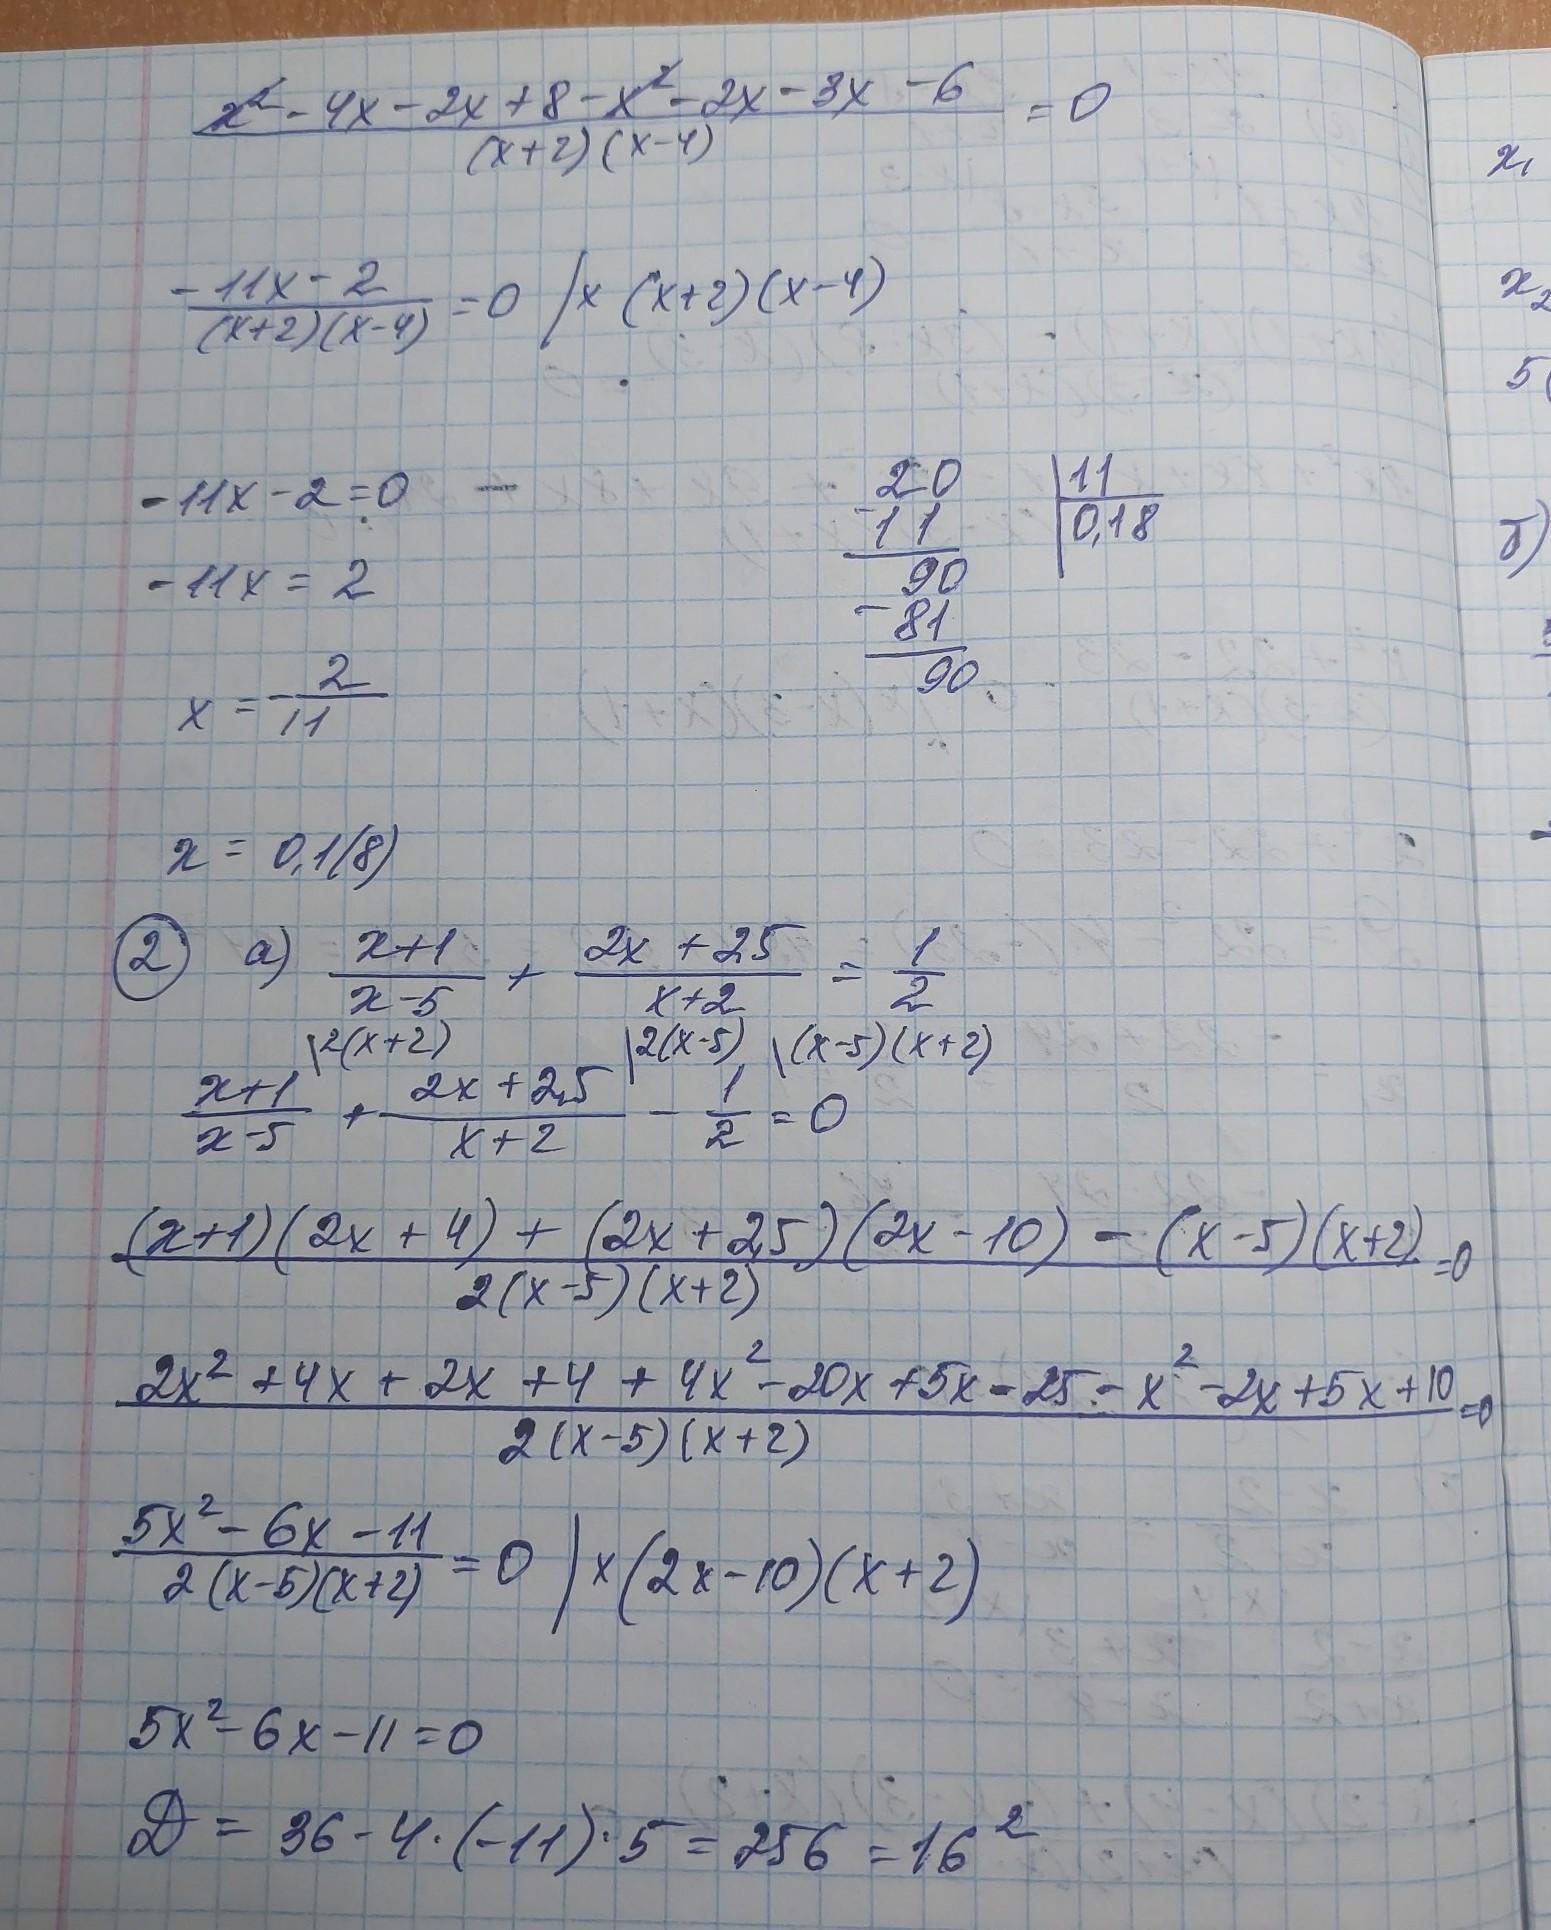 x² - 4x - 2x + 8 - x² - 2x - 3x - 6 = 0
(x+2)(x-4)
-11x - 2 = 0 | x (x+2)(x-4)
(x+2)(x-4)
-11x - 2 = 0
-11x = 2
x = - 2
11
20 | 11
- 11 | 0,18
90
- 81
90
x = 0,1(8)
2 a) x+1 + 2x + 2,5 = 1
x-5 x+2 2
\2(x+2) \2(x-5) \(x-5)(x+2)
x+1 + 2x + 2,5 - 1 = 0
x-5 x+2 2
(x+1)(2x + 4) + (2x + 2,5)(2x - 10) - (x-5)(x+2) = 0
2(x-5)(x+2)
2x² + 4x + 2x + 4 + 4x² - 20x + 5x - 25 - x² - 2x + 5x + 10 = 0
2(x-5)(x+2)
5x² - 6x - 11 = 0 | x (2x-10)(x+2)
2(x-5)(x+2)
5x² - 6x - 11 = 0
D = 36 - 4·(-11)·5 = 256 = 16²
x₁
x₂
5(
б)